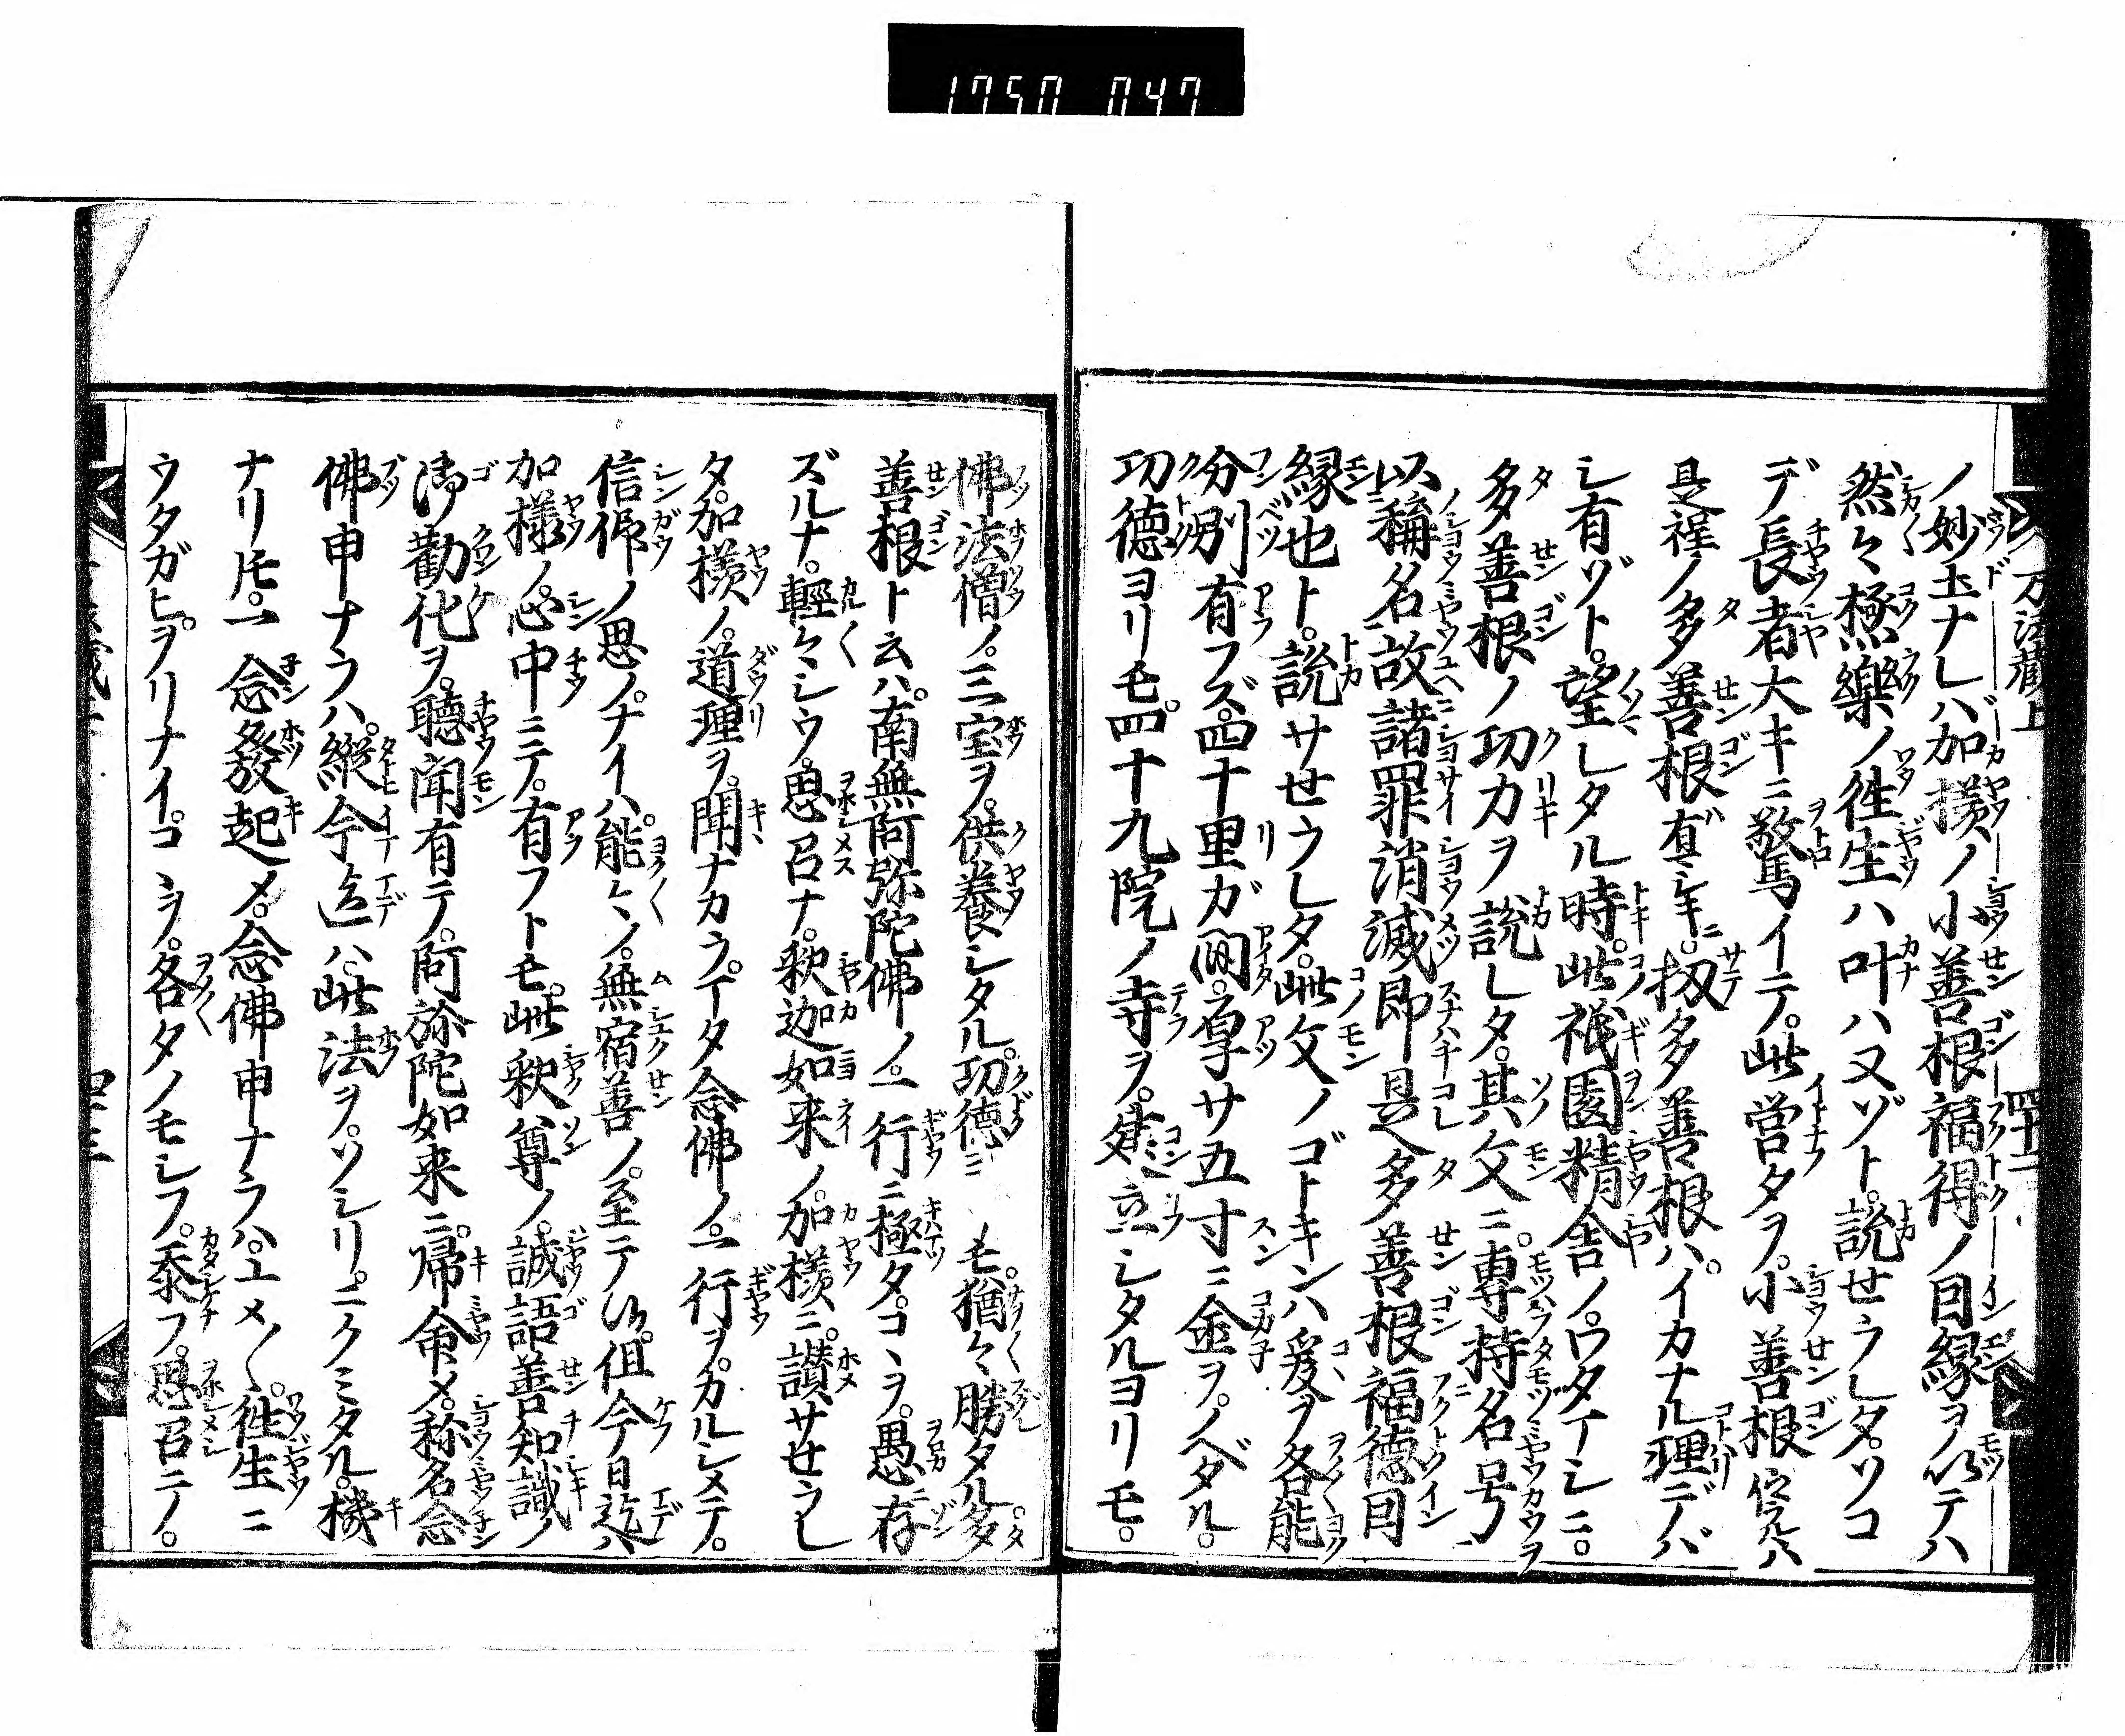 1750 047
万法藏上
ノ妙土ナレハ加様ノ小善根福得ノ因縁ヲ以テハ
然々極樂ノ徃生ハ叶ハヌゾト。説せラレタ。ソコ
デ長者大キニ驚イテ。此営タヲ。小善根位ラハ
是程ノ多善根ガ有ニ。扨多善根ハ。イカナル理デバ
シ有ゾト。望レタル時。此祇園精舎ノウタイレニ。
多善根ノ功力ヲ説レタ。其文ニ。専持名号
以稱名故諸罪消滅即是多善根福德因
縁也ト。説サせラレタ。此文ノゴトキンハ爰ヲ各能
分別有フズ。四十里ガ間。厚サ五寸ニ金ヲ。ノベタル。
功德ヨリモ。四十九院ノ寺ヲ。建立シタルヨリモ。
佛法僧ノ。三宝ヲ。供養シタル。功德ニ モ。猶々勝タル。多
善根ト云ハ。南無阿弥陀佛ノ。一行ニ極タ。コヽヲ。愚ニ存
ズルナ。輕々シウ。思召ナ。釈迦如来ノ。加様ニ。讃サせラレ
タ。加様ノ。道理ヲ。聞ナカラ。イタ念佛ノ。一行ヲ。カルシメテ。
信仰ノ思ノ。ナイハ。能々ノ。無宿善ノ。至テ候。但今日迄ハ
加様ノ。心中ニテ。有フトモ。此釈尊ノ。誠語善知識ノ
御勸化ヲ。聽聞有テ。阿弥陀如来ニ。帰命メ。称名念
佛申ナラハ。縦今迄ハ。此法ヲ。ソシリ。ニクミタル。機
ナリ𪜈。一念發起メ。念佛申ナラハ。ユメ〳〵。徃生ニ
ウタガヒ。ヲリナイ。コヽヲ。各タノモシフ。忝フ。思召ニノ。